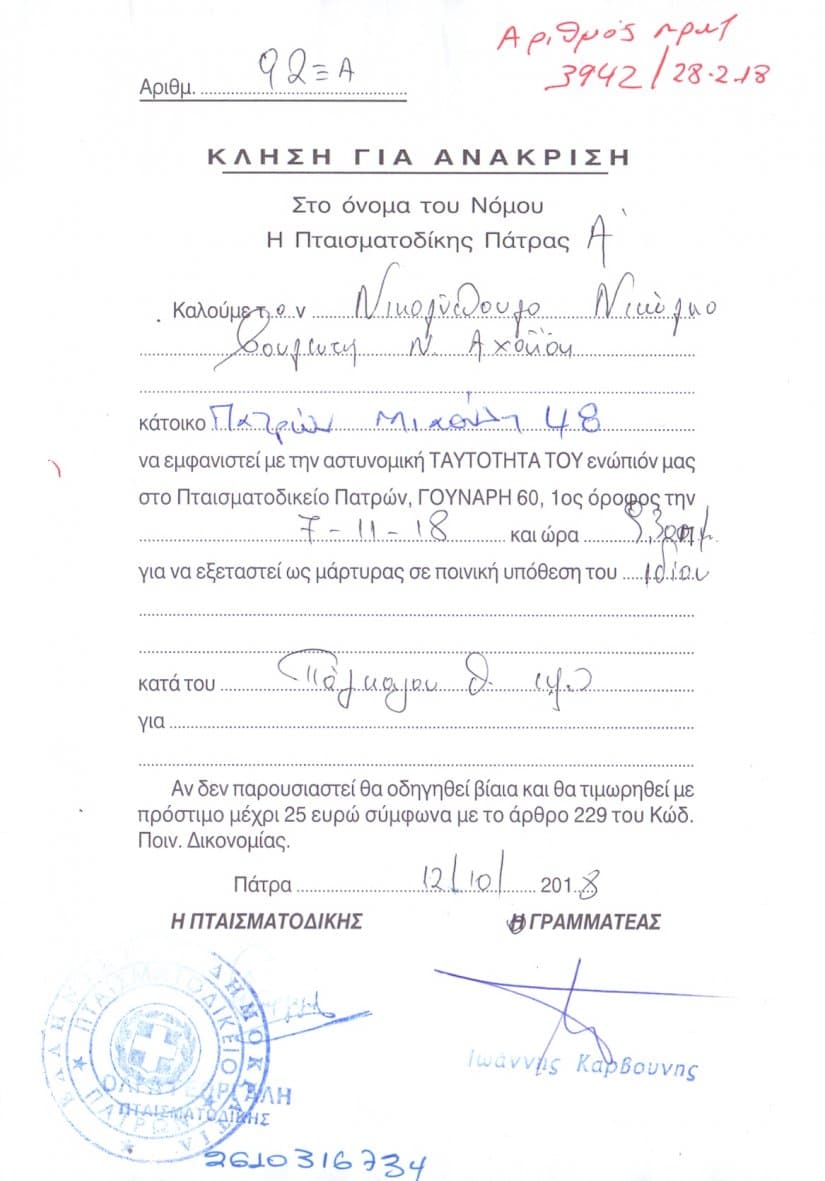 Αριθμός πρωτ
3942/28-2-18
Αριθμ. 92ΞΑ
ΚΛΗΣΗ ΓΙΑ ΑΝΑΚΡΙΣΗ
Στο όνομα του Νόμου
Η Πταισματοδίκης Πάτρας Α'
Καλούμε τ.ο.ν Νικολόπουλο Νικόλαο
βουλευτή Ν. Αχαΐας
κάτοικο Πατρών Μιαούλη 48
να εμφανιστεί με την αστυνομική ΤΑΥΤΟΤΗΤΑ ΤΟΥ ενώπιόν μας
στο Πταισματοδικείο Πατρών, ΓΟΥΝΑΡΗ 60, 1ος όροφος την
7-11-18 και ώρα 9,30 π.μ.
για να εξεταστεί ως μάρτυρας σε ποινική υπόθεση του ιδίου
κατά του Πάγκαλου Θ.
για
Αν δεν παρουσιαστεί θα οδηγηθεί βίαια και θα τιμωρηθεί με
πρόστιμο μέχρι 25 ευρώ σύμφωνα με το άρθρο 229 του Κώδ.
Ποιν. Δικονομίας.
Πάτρα 12/10/ 2018
Η ΠΤΑΙΣΜΑΤΟΔΙΚΗΣ Ο ΓΡΑΜΜΑΤΕΑΣ
ΕΛΛΗΝΙΚΗ ΔΗΜΟΚΡΑΤΙΑ
ΠΤΑΙΣΜΑΤΟΔΙΚΕΙΟ ΠΑΤΡΩΝ
Ιωάννης Καρβουνης
ΠΤΑΙΣΜΑΤΟΔΙΚΗΣ
2610316734